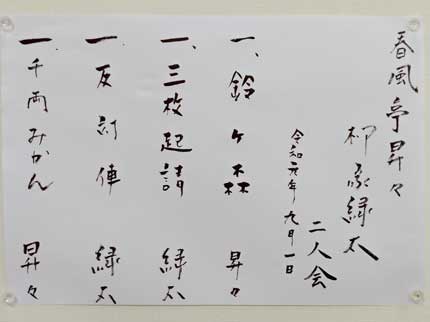 春風亭昇々
柳家緑太
二人会
令和元年九月一日
一、鈴ヶ森 昇々
一、三枚起請 緑太
一、反対俥 緑太
一、千両みかん 昇々